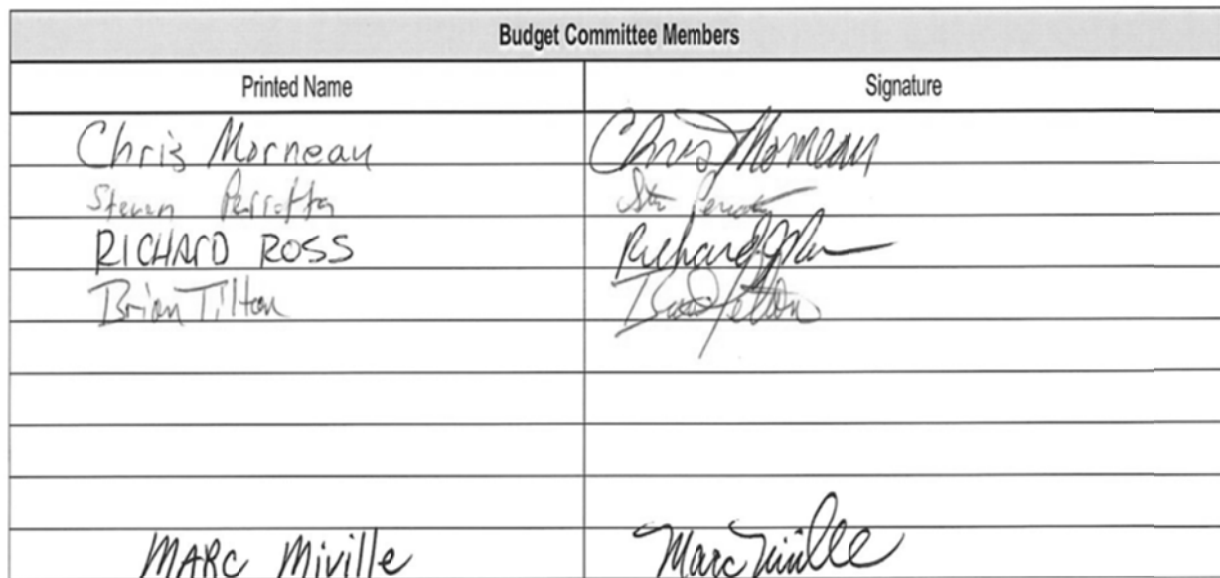 Budget Committee Members
Printed Name Signature
Chris Morneau Chris Morneau
Steven Perrotta
RICHARD ROSS Richard
Brian Tilton Tilton
MARC Miville Marc Miville